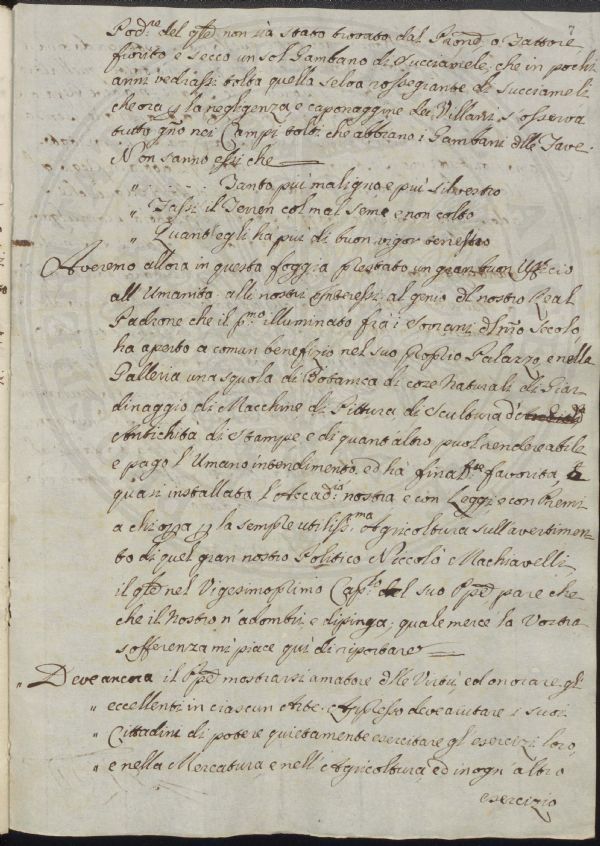 7
Pod.re del q.le non sia stato trovato dal Pron.e o Fattore
fiorito e secco un sol Gambano di Succiamele, che in pochi
anni vedrassi tolta quella selva rosseggiante de Succiameli
che ora p la negligenza, e caponaggine dei Villani s'osserva
tutto gno nei Campi tolti che abbiano i Gambani dlle Fave.
Non sanno essi che
" Tanto piu maligno e piu silvestro
" Fassi il Terren col mal seme, e non colto
" Quant'egli ha piu di buon vigor terrestro
Averemo allora in questa foggia prestato un gran buon Uffcio
all'Umanita alli nostri interessi, al genio dl nostro Real
Padrone che il p.mo illuminato frà i Sovrani dl nro Secolo
ha aperto a comun benefizio nel suo proprio Palazzo, e nella
Galleria una squola di Botanica di coze Naturali di Giar
dinaggio di Macchine di Pittura di Scultura d'
Antichità di Stampe e di quant'altro puol rendere abile
e pago l'Umano intendimento, ed hà final.te favorita, e
quasi installata l'Accad.ia nostra e con Leggi e con Premi
a chiozza p la sempre utiliss.ma Agricoltura sull'avertimen
to di quel gran nostro Politico Niccolò Machiavelli
il q.le nel Vigesimoprimo Cap.lo del suo Ppe pare che
che il Nostro n'adombri e dipinga; quale merce la Vostra
sofferenza mi piace quì di riportare
" Deve ancora il Ppe mostrarsi amatore dlle Virtù, ed onorare gl'
" eccellenti in ciascun Arte. Appresso deve aiutare i suoi
" Cittadini di potere quietamente esercitare gl'esercizi loro,
" e nella Mercatura e nell'Agricoltura, ed in ogn'altro
esercizio